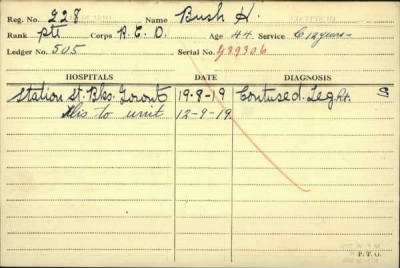 Reg. No. 228 Name Bush H.
Rank Pte Corps A.C.D. Age 44. Service 6 12 years
Ledger No. 505 Serial No. 489306
HOSPITALS DATE DIAGNOSIS
Station St. Bks. Toronto 19-8-19 Contused. Leg Rt. S
Dis to unit 12-9-19
P.T.O.